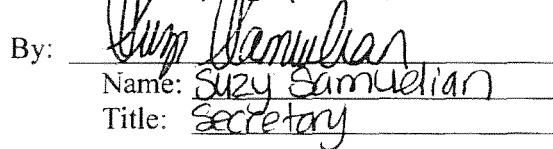 By: Suzy Samuelian
Name: Suzy Samuelian
Title: Secretary